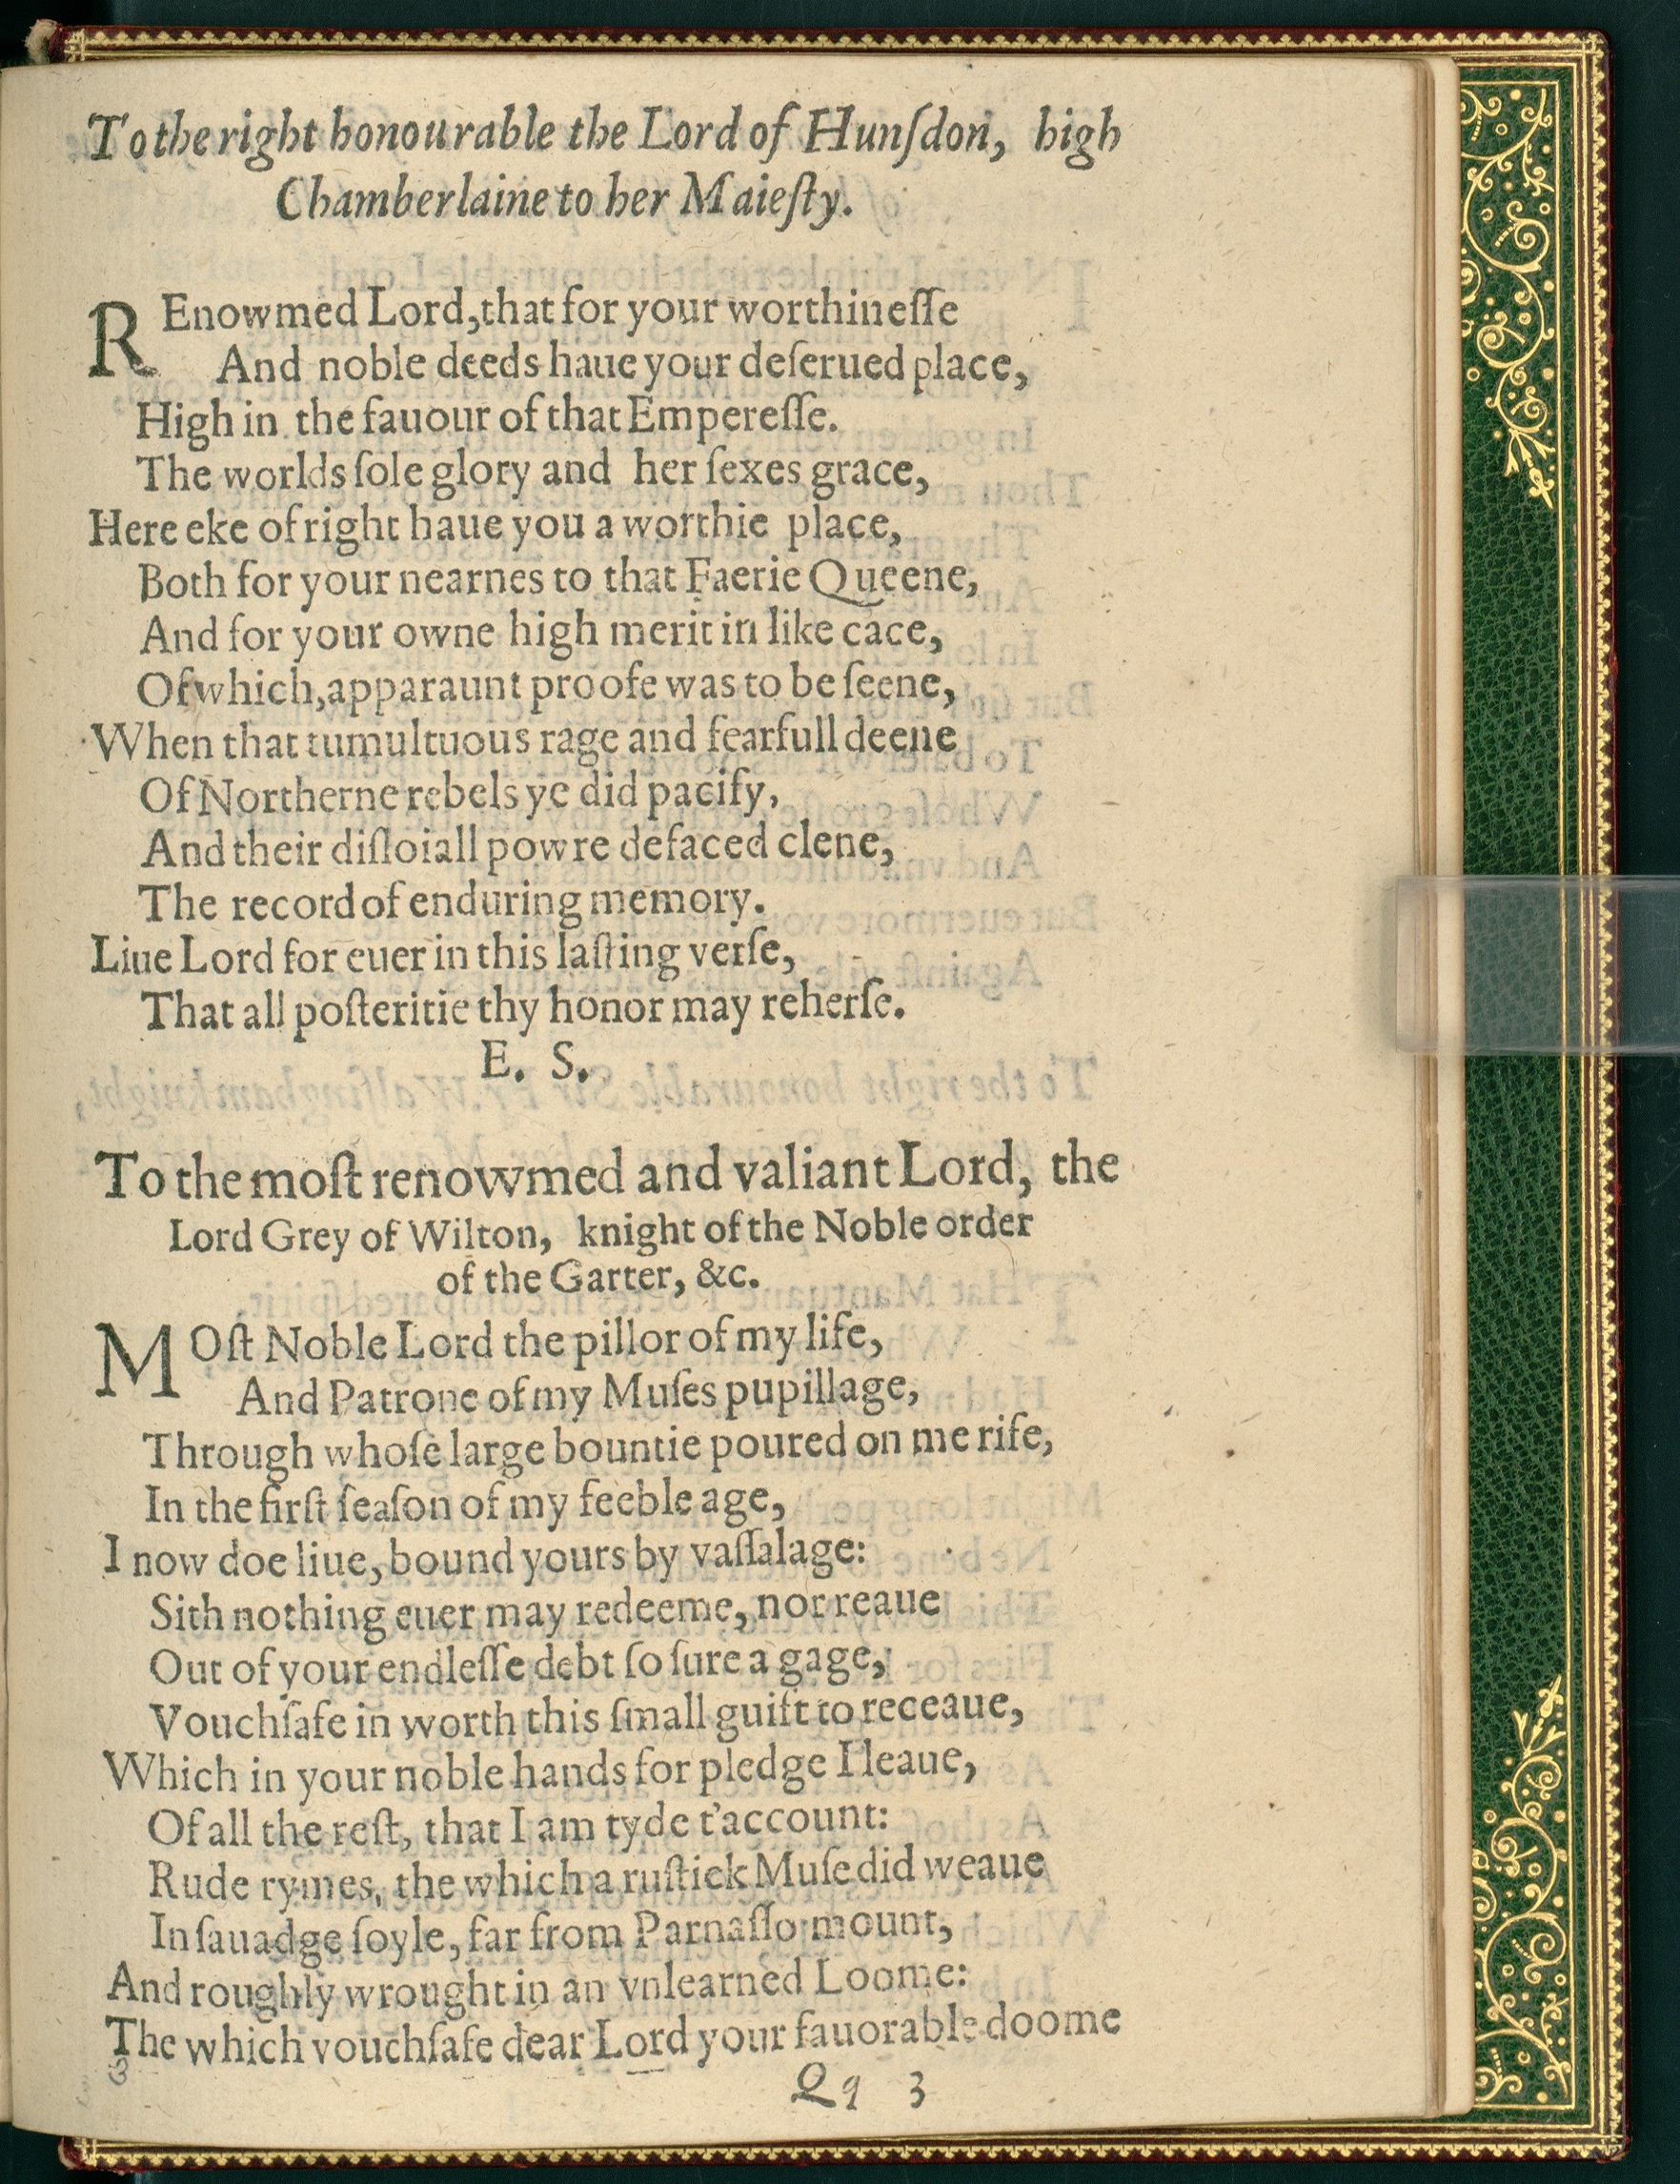 To the right honourable the Lord of Hunſdon, high
Chamberlaine to her Maieſty.
REnowmed Lord, that for your worthineſſe
And noble deeds haue your deſerued place,
High in the fauour of that Empereſſe.
The worlds ſole glory and her ſexes grace,
Here eke of right haue you a worthie place,
Both for your nearnes to that Faerie Queene,
And for your owne high merit in like cace,
Of which, apparaunt proofe was to be ſeene,
When that tumultuous rage and fearfull deene
Of Northerne rebels ye did pacify,
And their diſloiall powre defaced clene,
The record of enduring memory.
Liue Lord for euer in this laſting verſe,
That all poſteritie thy honor may reherſe.
E. S.
To the moſt renowmed and valiant Lord, the
Lord Grey of Wilton, knight of the Noble order
of the Garter, &c.
MOſt Noble Lord the pillor of my life,
And Patrone of my Muſes pupillage,
Through whoſe large bountie poured on me rife,
In the firſt ſeaſon of my feeble age,
I now doe liue, bound yours by vaſſalage:
Sith nothing euer may redeeme, nor reaue
Out of your endleſſe debt ſo ſure a gage,
Vouchſafe in worth this ſmall guift to receaue,
Which in your noble hands for pledge I leaue,
Of all the reſt, that I am tyde t'account:
Rude rymes, the which a ruſtick Muſe did weaue
In ſauadge ſoyle, far from Parnaſſo mount,
And roughly wrought in an vnlearned Loome:
The which vouchſafe dear Lord your fauorable doome
Qq 3